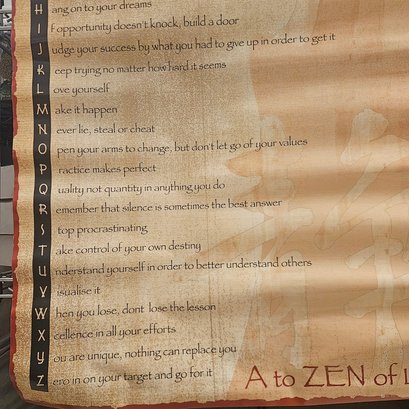 Hang on to your dreams
If opportunity doesn't knock, build a door
Judge your success by what you had to give up in order to get it
Keep trying no matter how hard it seems
Love yourself
Make it happen
Never lie, steal or cheat
Open your arms to change, but don't let go of your values
Practice makes perfect
Quality not quantity in anything you do
Remember that silence is sometimes the best answer
Stop procrastinating
Take control of your own destiny
Understand yourself in order to better understand others
Visualise it
When you lose, dont lose the lesson
Xcellence in all your efforts
You are unique, nothing can replace you
Zero in on your target and go for it
A to ZEN of